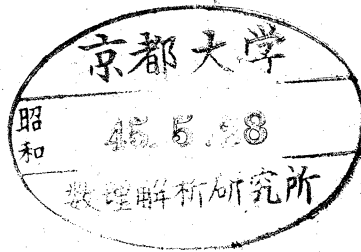 京都大学
昭和
45.5.28
数理解析研究所